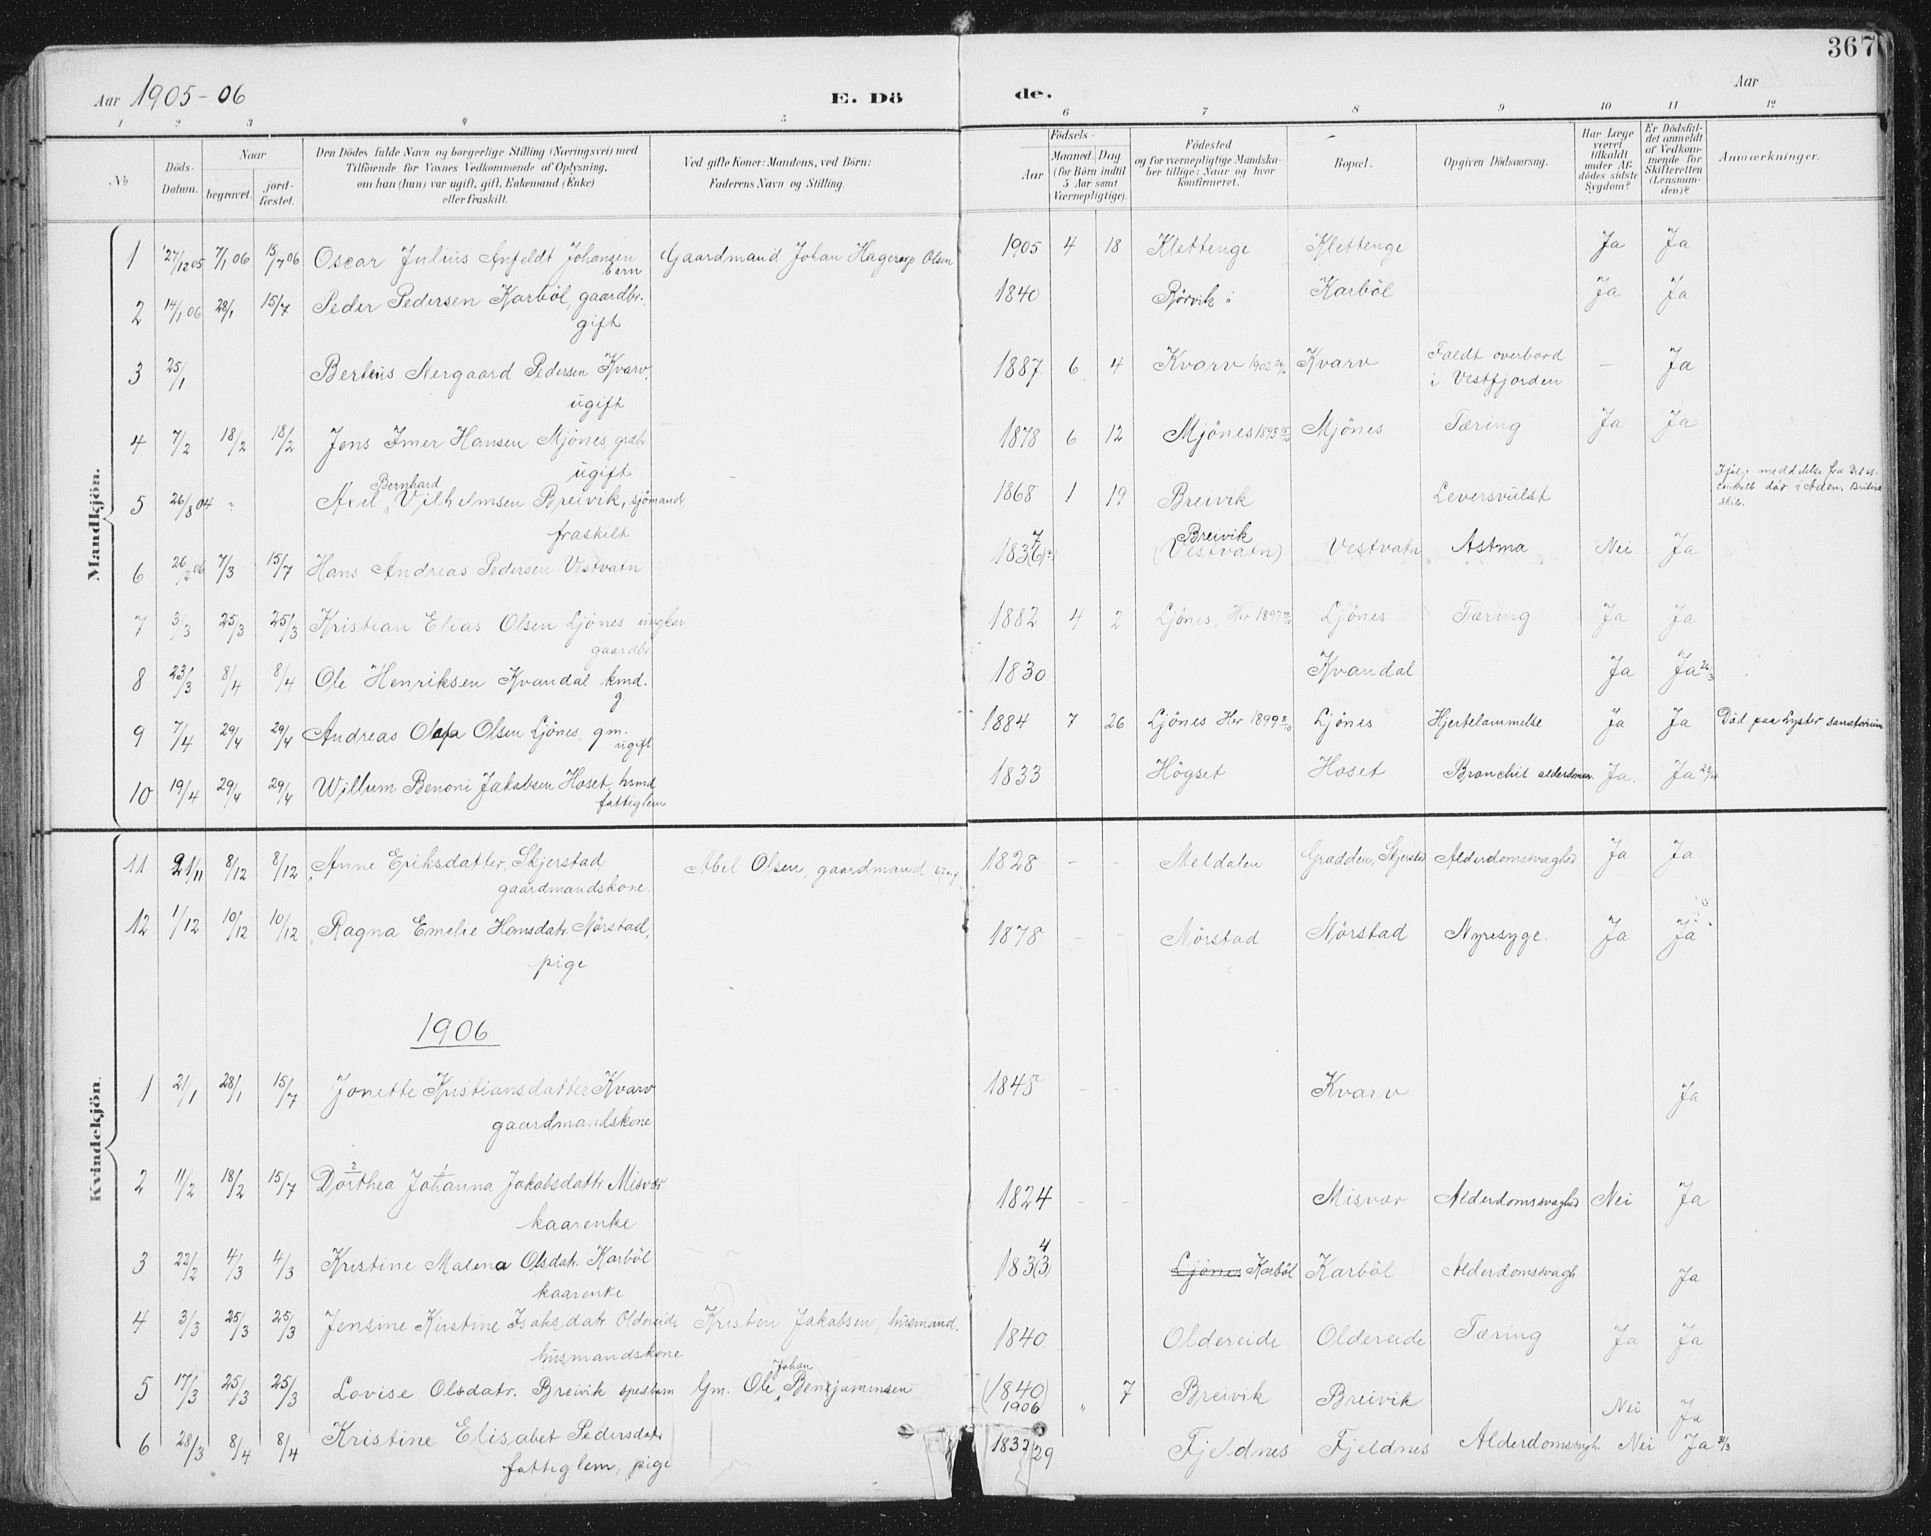 367
Aar 1905-06
E. Dö de.
Aar
1 2 3 4 5 6 7 8 9 10 11 12
№
Döds-Datum.
Naar begravet. jordfæstet.
Den Dödes fulde Navn og borgerlige Stilling (Næringsvei) med Tilföiende for Voxnes Vedkommende af Oplysning, om han (hun) var ugift, gift, Enkemand (Enke) eller fraskilt.
Ved gifte Koner: Mandens, ved Börn: Faderens Navn og Stilling.
Födsels-
Aar Maaned. Dag (for Börn indtil 5 Aar samt Værnepligtige).
Födested og for værnepligtige Mandskaber tillige: Naar og hvor konfirmeret.
Bopæl.
Opgiven Dödsaarsag.
Har Læge været tilkaldt under Afdödes sidste Sygdom?
Er Dödsfaldet anmeldt af Vedkommende for Skifteretten (Lensmanden)?
Anmærkninger.
Mandkjön.
1 27/12 05 7/1 06 15/7 06 Oscar Julius Anfeldt Johansen Gaardmand Johan Hagerup Olsen 1905 4 18 Klettenge Klettenge Ja Ja
barn
2 14/1 06 28/1 15/7 Peder Pedersen Karböl, gaardbr. 1840 Rörvik Karböl Ja Ja
gift
3 25/1 Bertius Nergaard Pedersen Kvarv, 1887 6 4 Kvarv 1902 Kvarv Faldt overbord i Vestfjorden - Ja
ugift
4 7/2 18/2 18/2 Jens Imer Hansen Mjönes, 1878 6 12 Mjönes 1893 Mjönes Tæring Ja Ja
ugift
5 26/8 04 Axel Bernhard Vilhelmsen Breivik, sjömand, 1868 1 19 Breivik Leversvulst
fraskilt
6 26/2 06 7/3 15/7 Hans Andreas Pedersen Vestvatn 1836 7 Breivik (Vestvatn) Vestvatn Astma Nei Ja
7 3/3 25/3 25/3 Kristian Elias Olsen Ljönes ungkar 1882 4 2 Ljönes, Her 1897 Ljönes Tæring Ja Ja
gaardbr.
8 23/3 8/4 8/4 Ole Henriksen Kvandal kmd. 1830 Kvandal Ja Ja 26/3
g
9 7/4 29/4 29/4 Andreas Olsen Ljönes, gm. 1884 7 26 Ljönes Her 1899 Ljönes Hjertelammelse Ja Ja Död paa Lyster sanatorium
ugift
10 19/4 29/4 29/4 Willum Benoni Jakobsen Hoset, hsmd 1833 Högset Hoset Bronchit Ja. Ja
fattiglem
Kvindekjön.
11 21/11 8/12 8/12 Anne Eriksdatter, Skjerstad Abel Olsen, gaardmand 1828 - - Meldalen Gradden, Skjerstad Alderdomssvaghed Ja Ja
gaardmandskone.
12 1/12 10/12 10/12 Ragna Emelie Hansdatr. Nörstad, 1878 - - Nörstad Nörstad Nyresyge. Ja Ja
pige
1906
1 21/1 28/1 15/7 Jonette Kristiansdatter Kvarv 1845 - - Kvarv Ja
gaardmandskone
2 11/2 18/2 15/7 Dorthea Johanna Jakobsdattr Misvær 1824 - - Misvær Alderdomssvaghed Nei Ja
kaarenke
3 22/2 4/3 4/3 Kristine Malena Olsdatr. Karböl 183(3) 4 Ljönes Karböl Karböl Alderdomssvagh Ja
kaarenke
4 3/3 25/3 25/3 Jensine Kirstine Isaksdatr Oldereide Kristen Jakobsen, husmand. 1840 Oldereide Oldereide Tæring Ja Ja
husmandskone
5 17/3 25/3 25/3 Lovise Olsdatr. Breivik spedbarn Gm. Ole Johan Benjaminsen (1840) 1906 " 7 Breivik Breivik Nei Ja
6 28/3 8/4 8/4 Kristine Elisabet Pedersdatr 1832/29 Fjeldnes Fjeldnes Alderdomssvagh. Nei Ja 31/3
fattiglem, pige